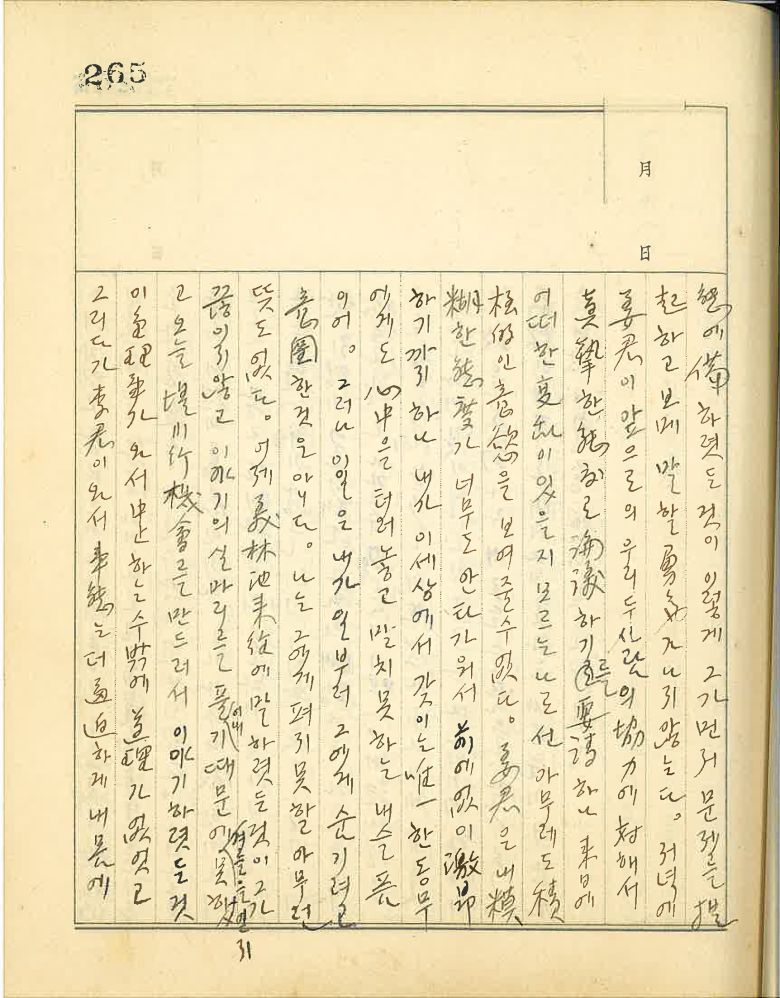 265
月
日
態에 備하렷든것이 이렇게 그가 먼저 문제를 提
起하고 보메 말할 勇氣가 나지 않는다. 저녁에
姜君이 앞으로의 우리 두사람의 協力에 対해서
真摯한 態度로 論議하기를 要請하나 来日에
어떠한 変動이 있을지 모르는 나로선 아무레도 積
極的인 意慾을 보여줄수없다. 姜君은 내 糢
糊한 態度가 너무도 안타가워서 前에없이 激昻
하기까지 하나 내가 이세상에서 갖이는 唯一한 동무
에게도 心中을 터러놓고 말치못하는 내 슬픔
이어。 그러나 이일은 내가 일부러 그에게 숨기려고
意圖한것은 아니다。 나는 그에게 펴지못할 아무런
뜻도 없다。 어제 義林池来往에 말하렷든것이 그가
끊이지않고 이야기의 실마리를 풀어내기때문에 못했
고 오늘 堤川行 機會를 만드러서 이야기하렷든것
이 理事가 와서 中止하는수밖에 道理가 없엇고
그리다가 李君이 와서 事態는 더 逼迫하게 내몸에